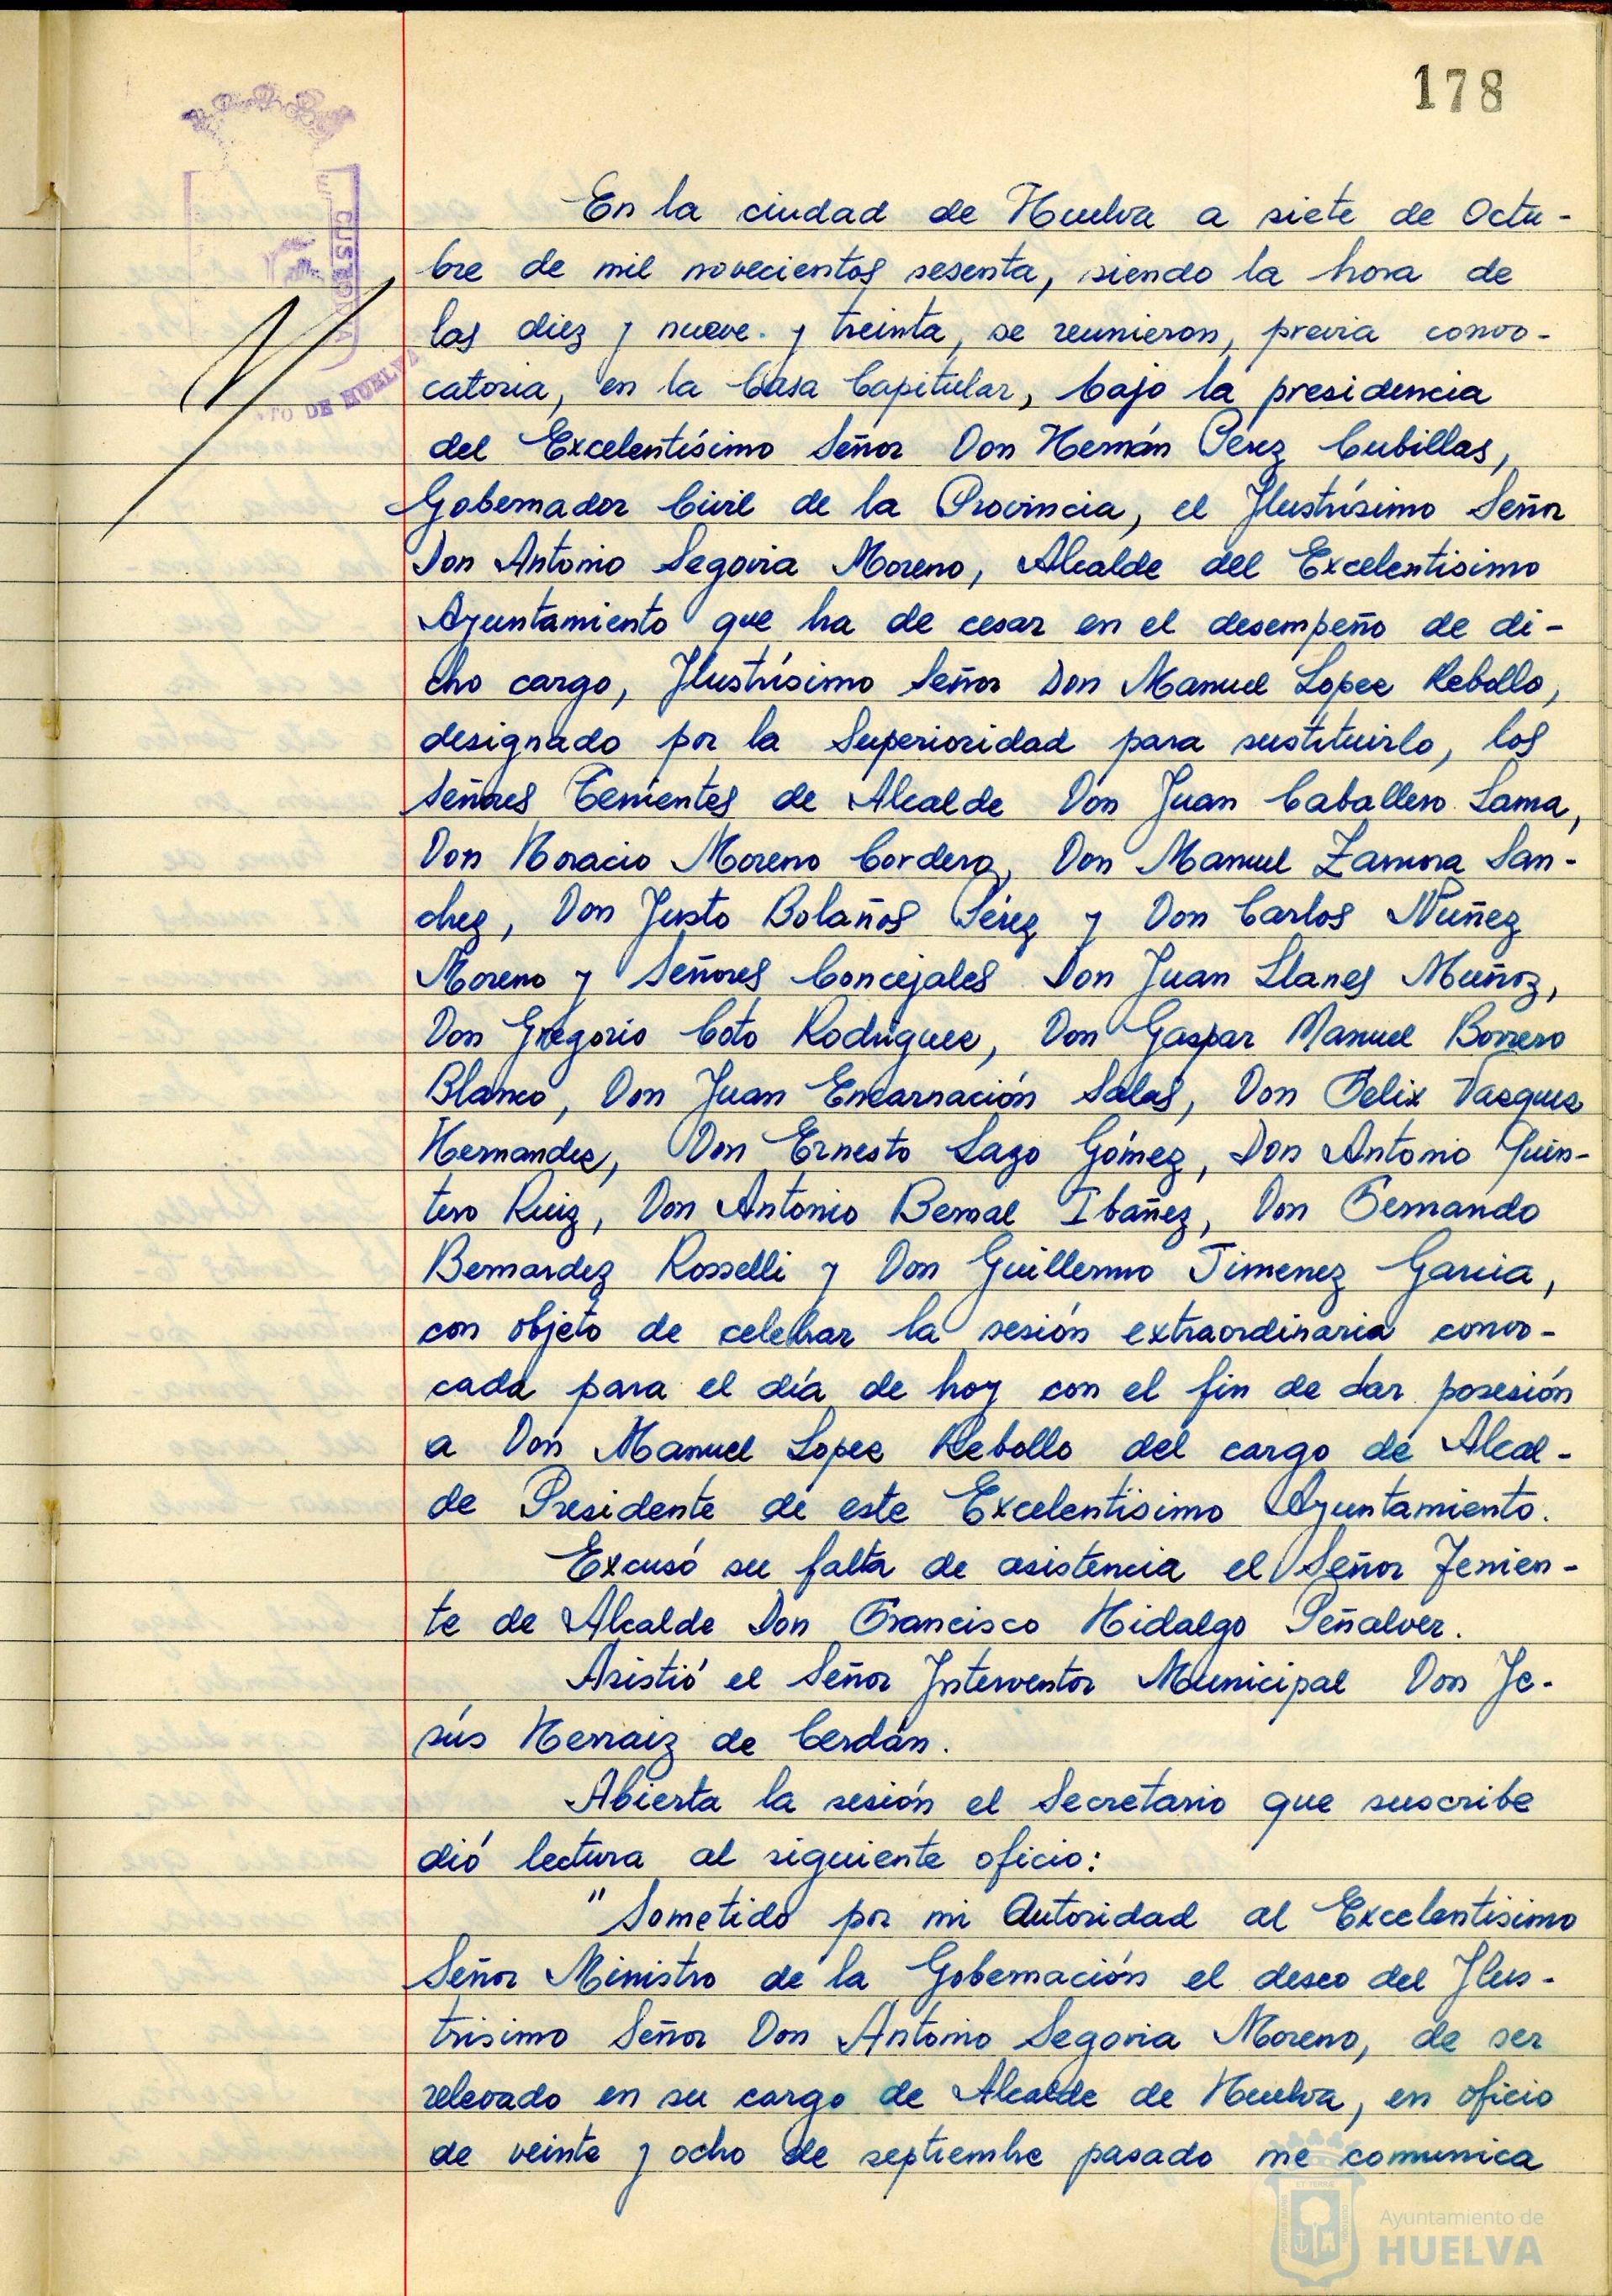 178
En la ciudad de Huelva a siete de Octu-
bre de mil novecientos sesenta, siendo la hora de
las diez y nueve y treinta, se reunieron, previa convo-
catoria, en la Casa Capitular, bajo la presidencia
del Excelentísimo Señor Don Hernán Pérez Cubillas,
Gobernador Civil de la Provincia, el Ilustrísimo Señor
Don Antonio Segovia Moreno, Alcalde del Excelentisimo
Ayuntamiento que ha de cesar en el desempeño de di-
cho cargo, Ilustrísimo Señor Don Manuel Lopez Rebollo,
designado por la Superioridad para sustituirlo, los
Señores Tenientes de Alcalde Don Juan Caballero Lama,
Don Horacio Moreno Cordero, Don Manuel Zamora San-
chez, Don Justo Bolaños Pérez y Don Carlos Nuñez
Moreno y Señores Concejales Don Juan Llanes Muñoz,
Don Gregorio Coto Rodriguez, Don Gaspar Manuel Borrero
Blanco, Don Juan Encarnación Salas, Don Felix Vazquez
Hernandez, Don Ernesto Lazo Gómez, Don Antonio Quin-
tero Ruiz, Don Antonio Bernal Ibañez, Don Fernando
Bernardez Rosselli y Don Guillermo Jimenez Garcia,
con objeto de celebrar la sesión extraordinaria convo-
cada para el día de hoy con el fin de dar posesión
a Don Manuel Lopez Rebollo del cargo de Alcal-
de Presidente de este Excelentisimo Ayuntamiento.
Excusó su falta de asistencia el Señor Tenien-
te de Alcalde Don Francisco Hidalgo Peñalver.
Asistió el Señor Interventor Municipal Don Je-
sús Herraiz de Cerdán.
Abierta la sesión el Secretario que suscribe
dió lectura al siguiente oficio:
"Sometido por mi Autoridad al Excelentisimo
Señor Ministro de la Gobernación el deseo del Ilus-
trisimo Señor Don Antonio Segovia Moreno, de ser
relevado en su cargo de Alcalde de Huelva, en oficio
de veinte y ocho de septiembre pasado me comunica
CUSTODIA
TO DE HUELVA
Ayuntamiento de
HUELVA